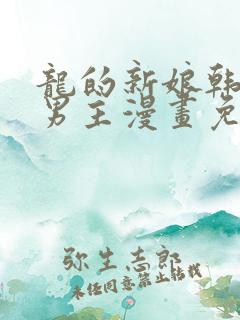 龍的新娘韓
男主漫畫免
弥生志郎
未经同意禁止转载